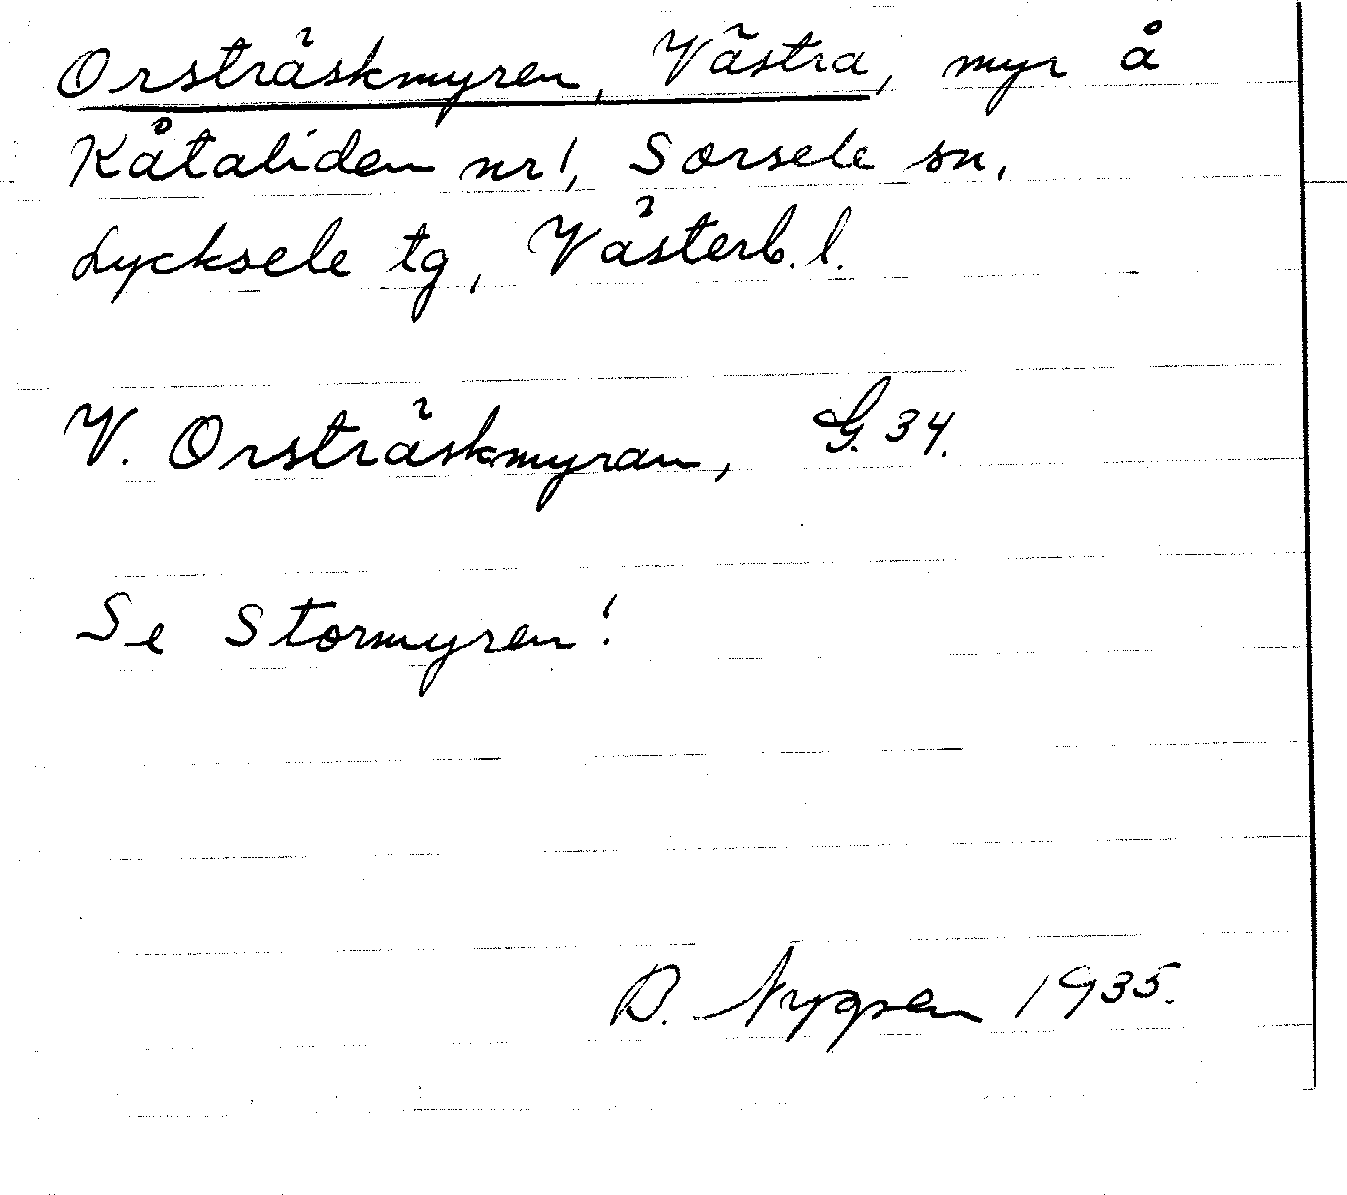 Orsträskmyren, Västra, myr å
Kåtaliden nr 1, Sorsele sn,
Lycksele tg, Västerb. l.
V. Orsträskmyran, G. 34.
Se Stormyren!
D. 1935.